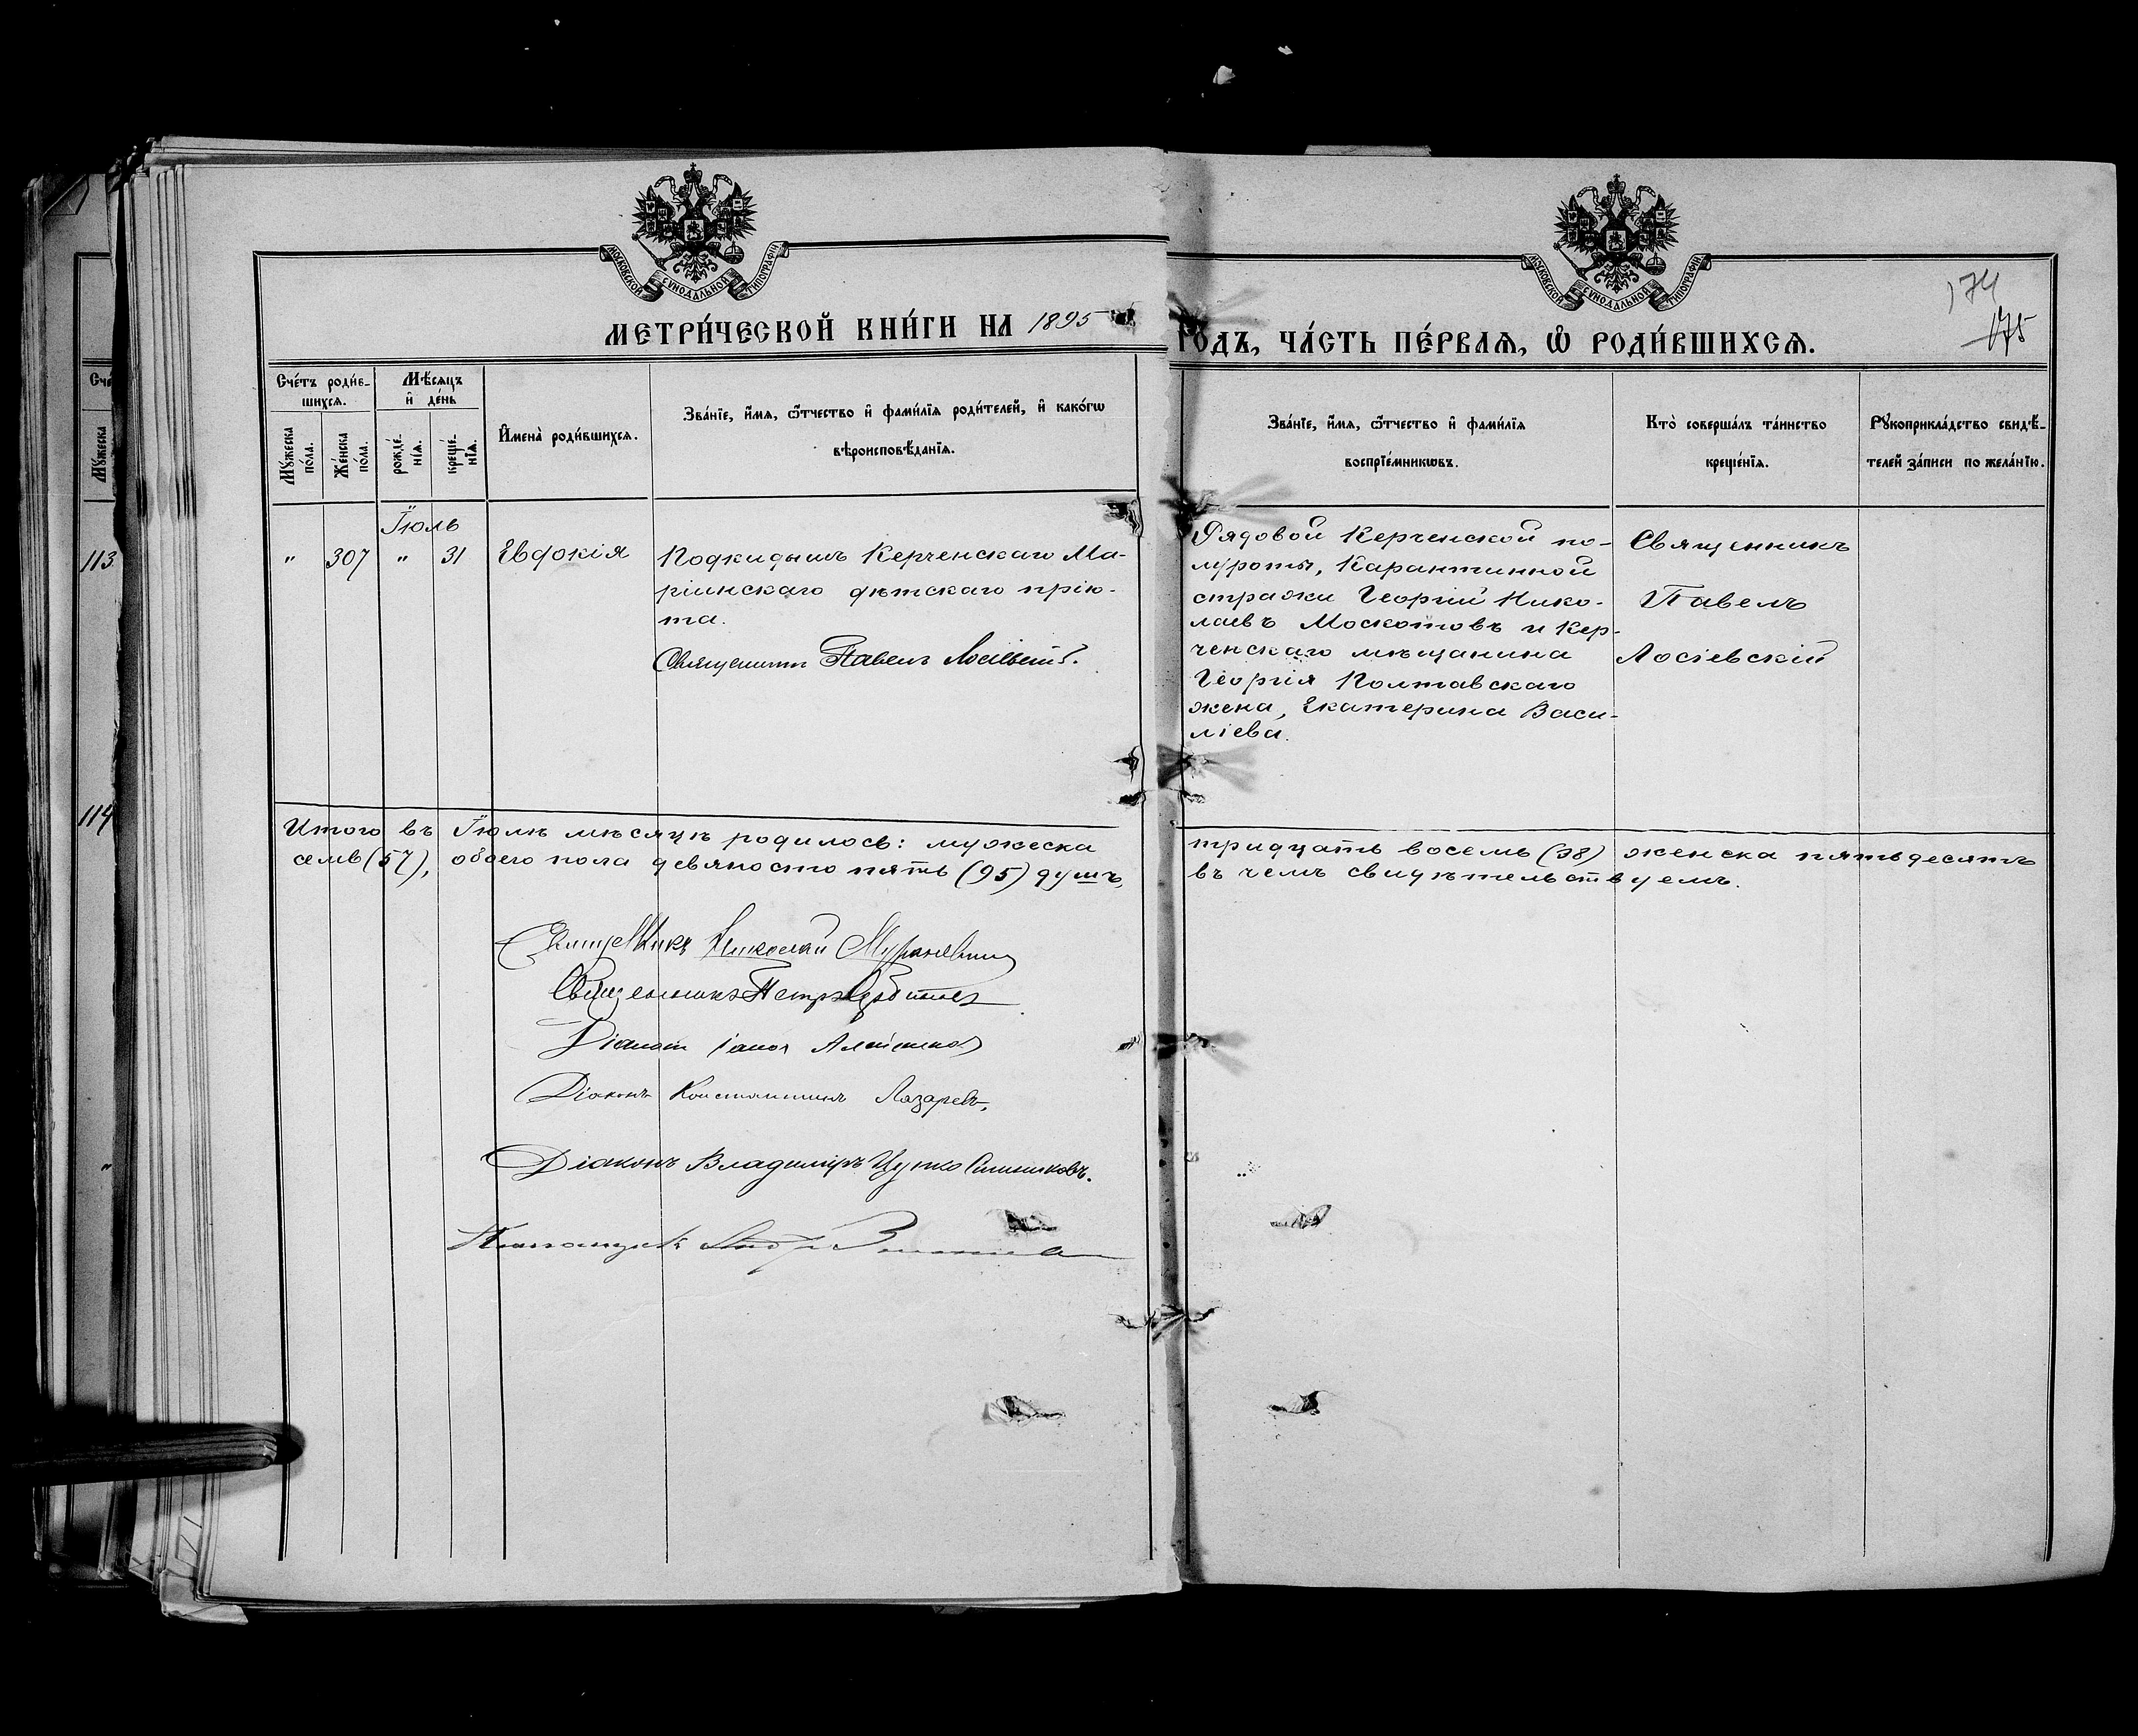 МОСКОВСКОЙ СУНОДАЛЬНОЙ ТИПОГРАФІИ
МОСКОВСКОЙ СУНОДАЛЬНОЙ ТИПОГРАФІИ
174
175
МЕТРИ́ЧЕСКОЙ КНИ́ГИ НА 1895 ГОДЪ, ЧА́СТЬ ПЕ́РВАЯ, Ѡ РОДИ́ВШИХСЯ.
Сче́тъ роди́в-
шихся.
Мꙋжеска
по́ла.
Же́нска
по́ла.
Мѣ́сяцъ
и҆ де́нь
рожде́-
нїя.
креще́-
нїя.
И҆мена̀ роди́вшихся.
Зва́нїе, и҆́мя, ѻ҆́тчество и҆ фами́лїя роди́телей, и҆ како́гѡ
вѣроисповѣ́данїя.
Зва́нїе, и҆́мя, ѻ҆́тчество и҆ фами́лїя
воспрїе́мникѡвъ.
Кто̀ соверша́лъ та́инство
креще́нїя.
Рꙋкоприкла́дство свидѣ́-
телей за́писи по жела́нїю.
Іюль
" 307 " 31 Евдокія
Подкидышъ Керченскаго Ма-
ріинскаго дѣтскаго прію-
та.
Священникъ Павелъ Лосіевскій.
Рядовой Керченской по-
луроты, Карантинной
стражи Георгій Нико-
лаевъ Москотовъ и Кер-
ченскаго мѣщанина
Георгія Полтавскаго
жена, Екатерина Васи-
ліева.
Священникъ
Павелъ
Лосіевскій
Итого въ Іюлѣ мѣсяцѣ родилось: мужеска тридцать восемь (38) женска пятьдесятъ
семь (57), обоего пола девяносто пять (95) душъ, въ чемъ свидѣтельствуемъ.
Священникъ Николай
Священникъ Петръ
Діаконъ
Діаконъ Константинъ Лазаревъ.
Діаконъ Владиміръ
113
114